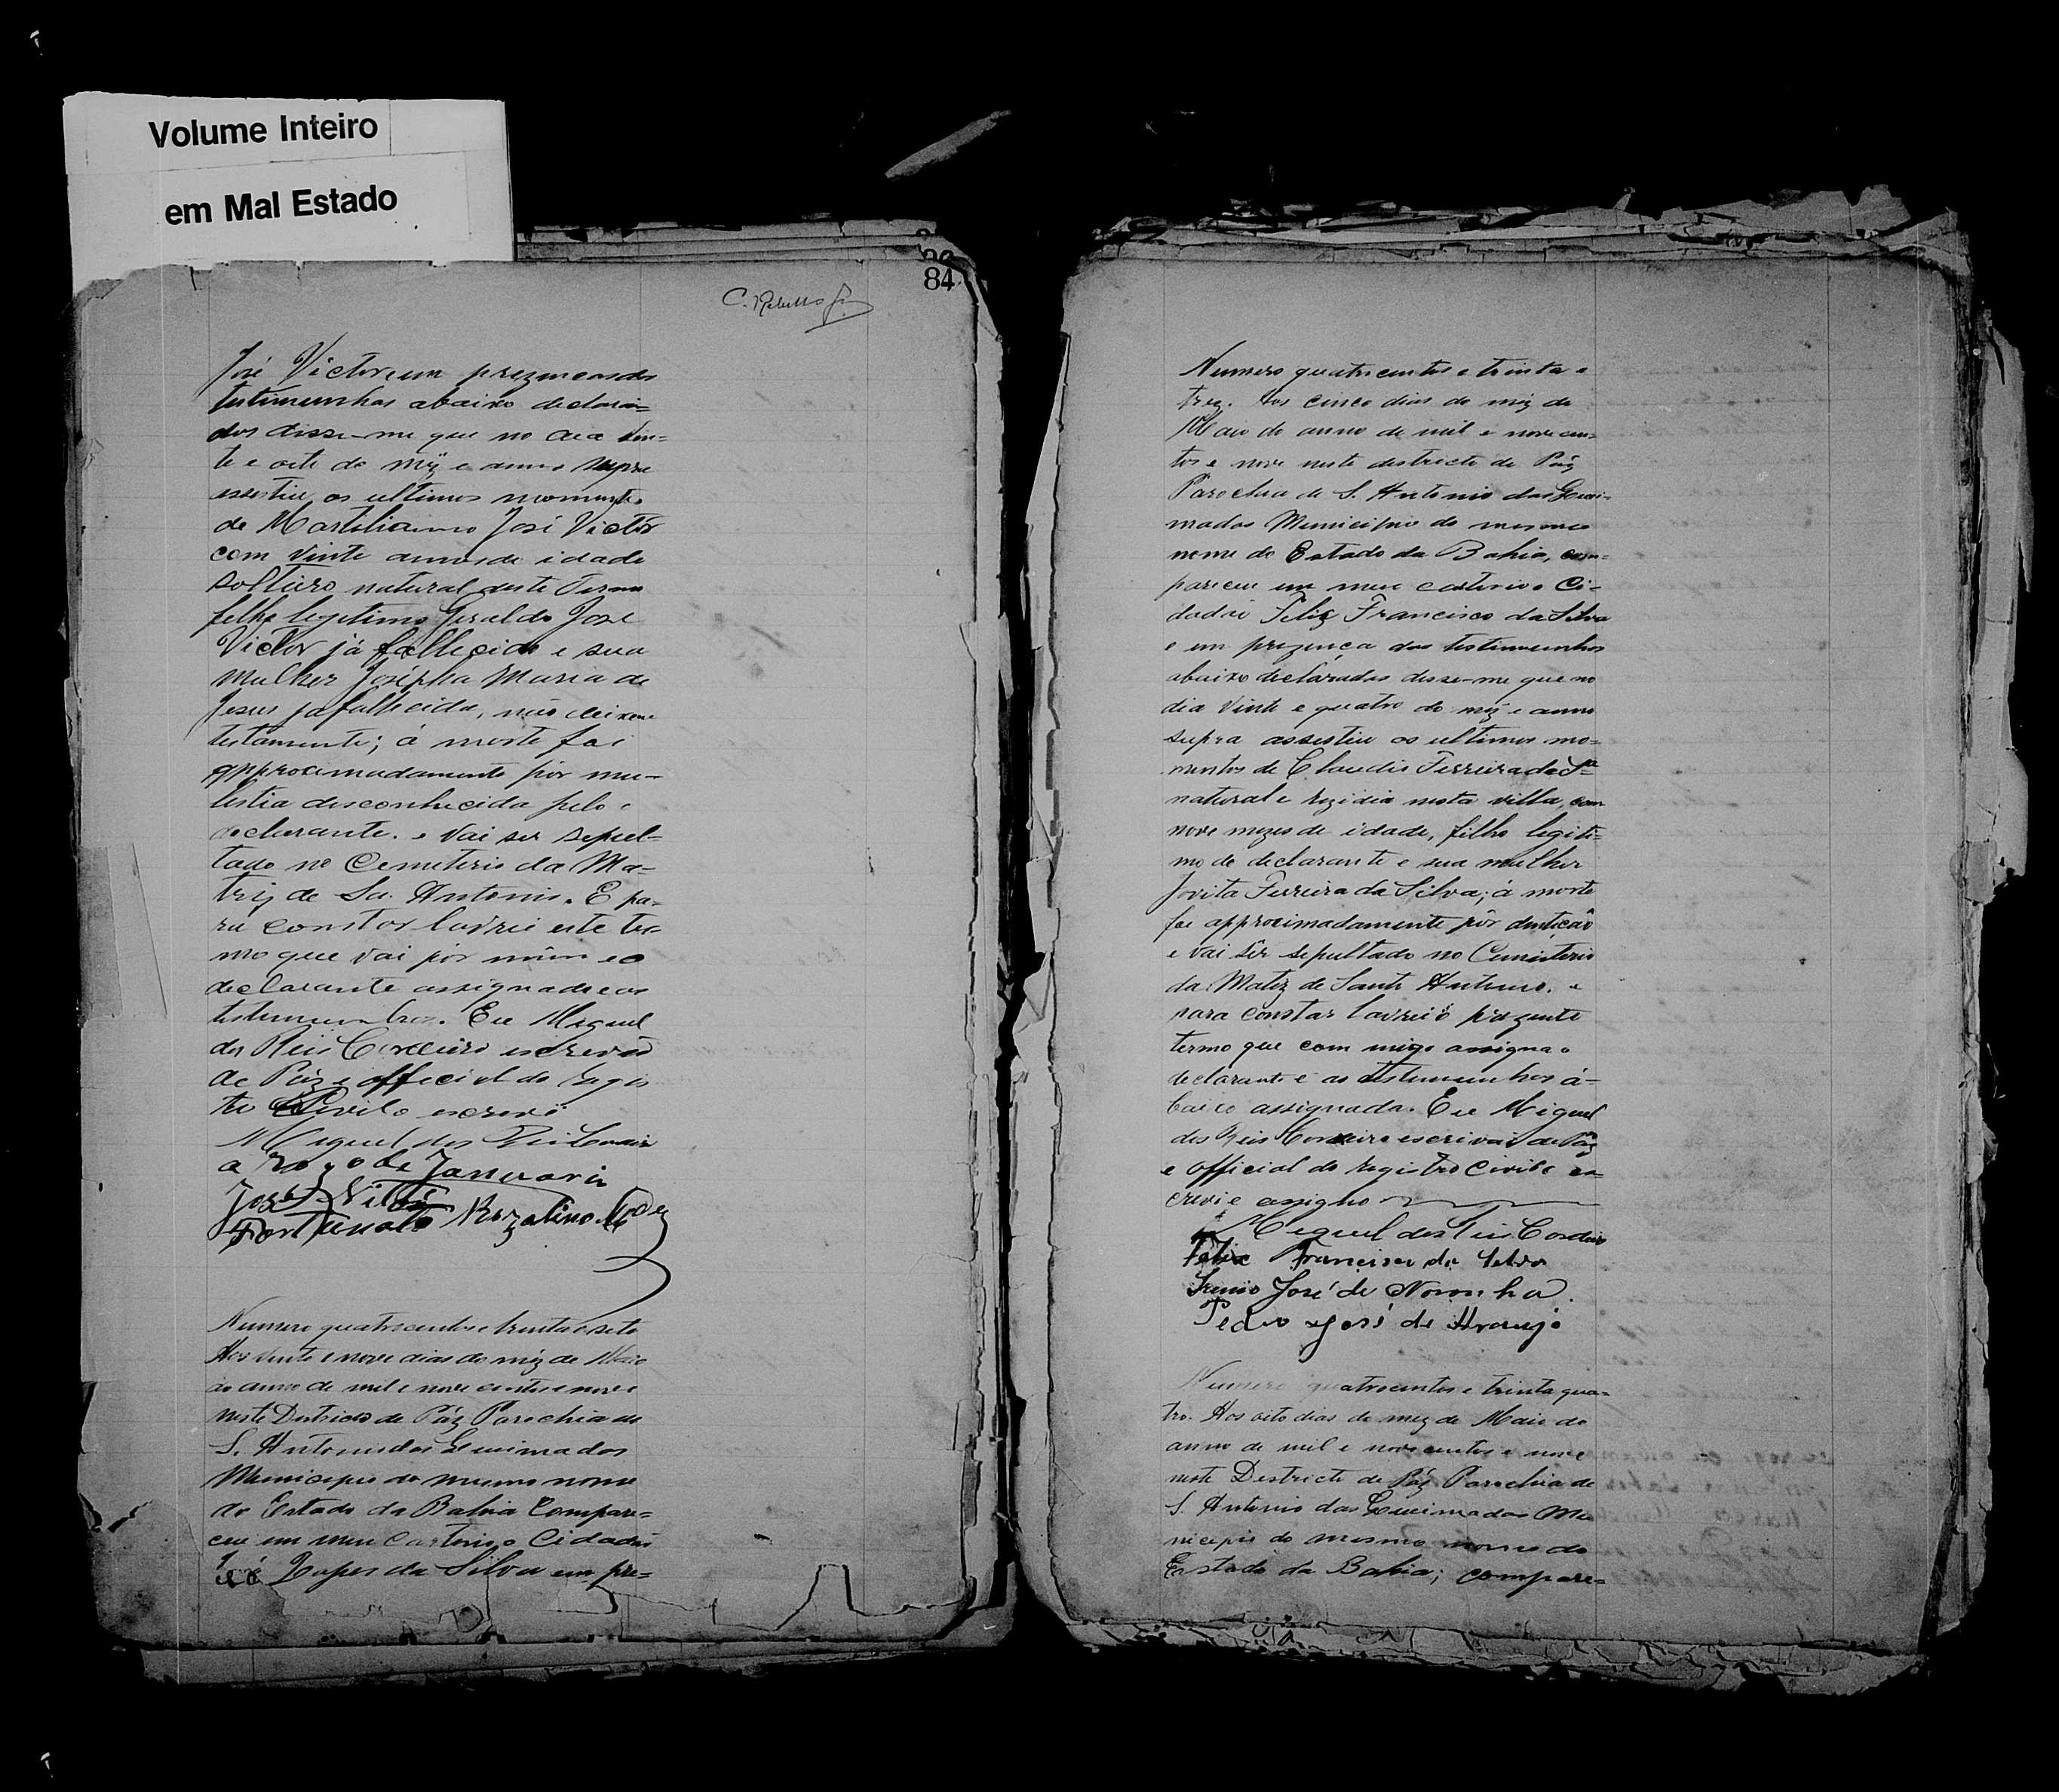 Volume Inteiro
em Mal Estado
84
José Victor em prezencas das
testimunhas abaixo declara=
dos disse-me que no dia vin=
te e oite do mez e anno supra
assestiu os ultimos momentos
de Martilianno José Victor
com vinte annos de idade
solteiro natural deste Termo
filho legitimo Geraldo José
Victor já fallecido e sua
mulher Josépha Maria de
Jesus ja fallecida, não deixou
testamento; á morte foi
approximadamente por mu-
lestia desconhecida pelo
declarante. e vai ser sepul-
tado no Cemeterio da Ma-
triz de Sto. Antonio. E pa-
ra constar lavrei este ter
mo que vai por mim e o
declarante assignado e as
testimunhas. Eu Miguel
dos Reis Cordeiro escrevão
de Paz e official do regis
tro Civil o escrevi
Miguel dos Reis Cordeiro
a rogo de Januario
José Victor
Fortunato Rozalino
Numero quatrocentos e trinta e sete
Aos vinte e nove dias do mez de Maio
do anno de mil e nove centos e nove
neste Destricto de Páz Parochia de
S. Antonio das Queimadas
Municipio do mesmo nome
do Estado da Bahia Compare=
ceu em meu Cartorio o Cidadão
José Lopes da Silva em pre=
Numero quatrocentos e trinta e
trez. Aos cinco dias do mez de
Maio do anno de mil e nove cen=
tos e nove neste destricto de Páz
Parochia de S. Antonio das Quei-
madas Municipio do mesmo
nome do Estado da Bahia, com=
pareceu em meu cartorio o Ci-
dadão Feliz Francisco da Silva
e em prezença das testimunhas
abaixo declaradas disse-me que no
dia vinte e quatro do mez e anno
supra assestiu os ultimos mo=
mentos de Claudio Ferreira da Sa
natural e rezidia nesta villa, com
nove mezes de idade, filho legiti=
mo do declarante e sua mulher
Jovita Ferreira da Silva; á morte
foi approximadamente pôr dentição
e vai sêr sepultado no Cemiterio
da Matiz de Santo Antonio. e
para constar lavrei o prezente
termo que com migo assigna o
declarante e as testimunhas á-
baixo assignada. Eu Miguel
dos Reis Cordeiro escrivão de Páz
e official do registro Civil o es-
crevi e assigno
Miguel dos Reis Cordeiro
Felix Francisco da Silva
Irenio José de Noronha.
Pedro José de Araujo
Numero quatrocentos e trinta qua=
tro. Aos oito dias do mez de Maio do
anno de mil e nove centos e nove
neste Destricto de Páz Parochia de
S. Antonio das Queimadas Mu
nicipio do mesmo nome do
Estado da Bahia; compare=